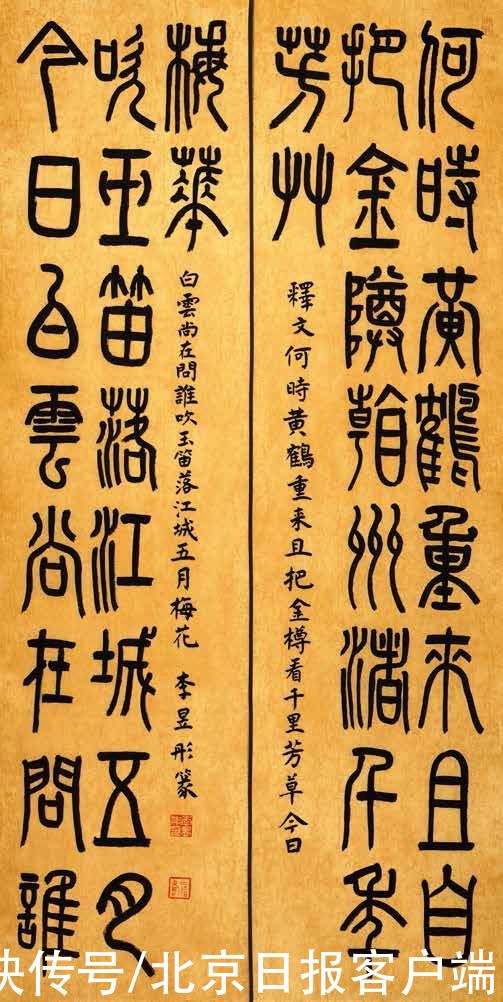 何時黃鶴重來且自
把金樽看州渚千年
芳艸
釋文何時黄鶴重来且把金樽看千里芳草今日
今日白雲尚在問誰
吹玉笛落江城五月
梅華
白雲尚在問誰吹玉笛落江城五月梅花 李昱彤篆
快传号/北京日报客户端